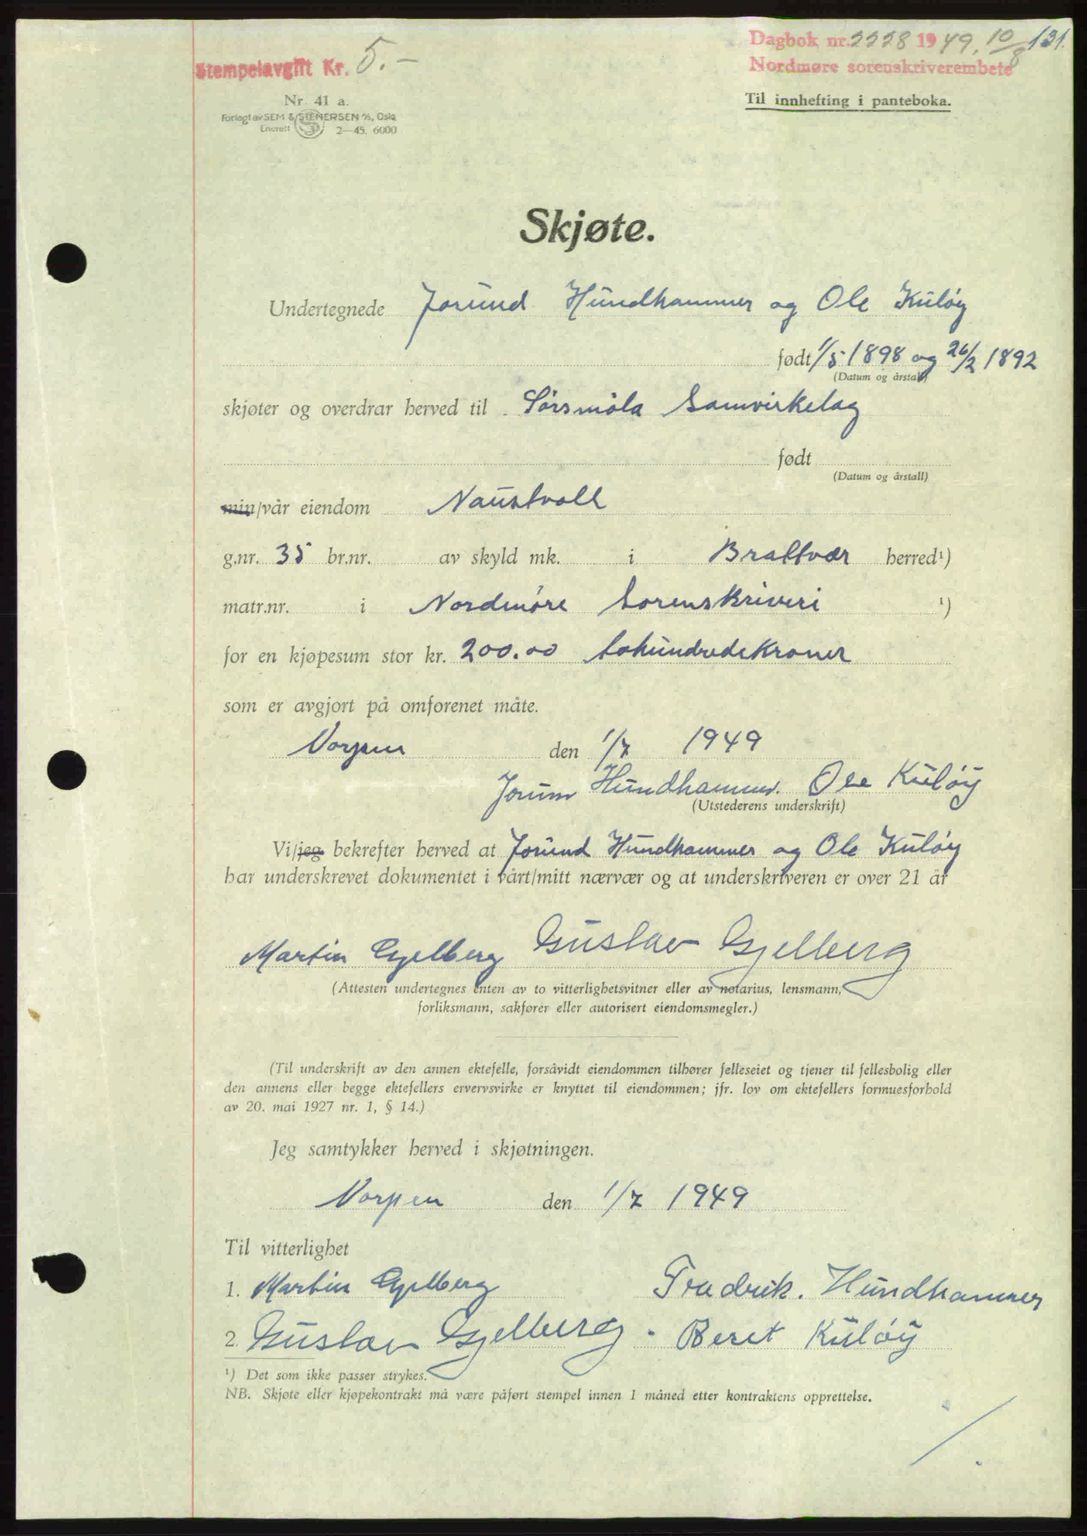 Stempelavgift Kr. 5.-
Dagbok nr. 2228 1949. 10/8 131.
Nordmøre sorenskriverembete
Til innhefting i panteboka.
Nr. 41 a.
Forlagt av SEM & STENERSEN A/S, Oslo
Enerett 2—45. 6000
Skjøte.
Undertegnede Jorund Hundhammer og Ole Kuløy
født 1/5 1898 og 26/2 1892
(Datum og årstall)
skjøter og overdrar herved til Sørsmøla Samvirkelag
født
(Datum og årstall)
min/vår eiendom Naustvoll
g.nr. 35 br.nr. av skyld mk. i Brattvær herred¹)
matr.nr. i Nordmøre Sorenskriveri ¹)
for en kjøpesum stor kr. 200.00 tohundredekroner
som er avgjort på omforenet måte.
den 1/7 1949
Jorun Hundhammer. Ole Kuløy
(Utstederens underskrift)
Vi/jeg bekrefter herved at Jorund Hundhammer og Ole Kuløy
har underskrevet dokumentet i vårt/mitt nærvær og at underskriveren er over 21 år
Martin Gjelberg Gustav Gjelberg
(Attesten undertegnes enten av to vitterlighetsvitner eller av notarius, lensmann,
forliksmann, sakfører eller autorisert eiendomsmegler.)
(Til underskrift av den annen ektefelle, forsåvidt eiendommen tilhører felleseiet og tjener til fellesbolig eller
den annens eller begge ektefellers ervervsvirke er knyttet til eiendommen; jfr. lov om ektefellers formuesforhold
av 20. mai 1927 nr. 1, § 14.)
Jeg samtykker herved i skjøtningen.
den 1/7 1949
Til vitterlighet
1. Martin Gjelberg Fredrik. Hundhammer
2. Gustav Gjelberg. Beret Kuløy
¹) Det som ikke passer strykes.
NB. Skjøte eller kjøpekontrakt må være påført stempel innen 1 måned etter kontraktens opprettelse.